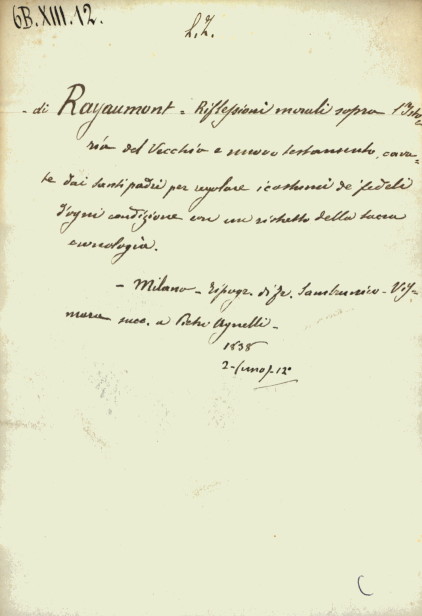 6B.XIII.12.
L.I.
- di Rayaumont = Riflessioni morali sopra l'Isto=
ria del Vecchio e nuovo testamento, cava=
te dai santi padri per regolare i costumi de' fedeli
d'ogni condizione con un ristretto della sacra
cronologia.
- Milano - Tipogr. di Fr. Sambrunico - Vis=
mara succ. a Pietro Agnelli -
1838
2 - (uno) - 12°